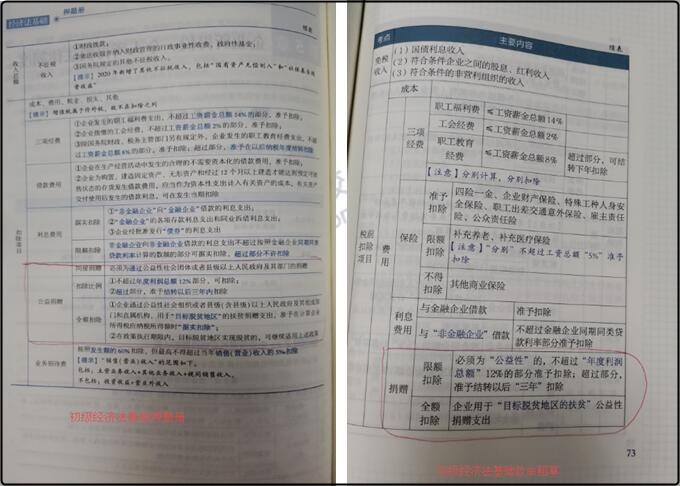 经济法基础 押题册
续表
收入总额
不征税收入
①财政拨款;
②依法收取并纳入财政管理的行政事业性收费、政府性基金;
③国务院规定的其他不征税收入。
【提示】2020年新增了其他不征税收入,包括“国有资产无偿划入”和“社保基金投资收益”
成本、费用、税金、损失、其他
【提示】增值税属于价外税,故不在扣除之列
扣除项目
三项经费
①企业发生的职工福利费支出,不超过工资薪金总额14%的部分,准予扣除;
②企业拨缴的工会经费,不超过工资薪金总额2%的部分,准予扣除;
③除国务院财政、税务主管部门另有规定外,企业发生的职工教育经费支出,不超过工资薪金总额8%的部分,准予扣除;超过部分,准予在以后纳税年度结转扣除
借款费用
①企业在生产经营活动中发生的合理的不需要资本化的借款费用,准予扣除;
②企业为购置、建造固定资产、无形资产和经过12个月以上建造才能达到预定可销售状态的存货发生借款费用,应当作为资本性支出计入有关资产的成本,有关资产交付使用后发生的借款利息,可在发生当期扣除
利息费用
据实扣除
①“非金融企业”向“金融企业”借款的利息支出;
②“金融企业”的各项存款利息支出和同业拆借利息支出;
③企业经批准发行“债券”的利息支出
限额扣除
非金融企业向非金融企业借款的利息支出不超过按照金融企业同期同类贷款利率计算的数额的部分可据实扣除,超过部分不许扣除
公益捐赠
间接捐赠
必须为通过公益性社会团体或者县级以上人民政府及其部门的捐赠
扣除比例
①不超过年度利润总额12%部分,可扣除;
②超过部分,准予结转以后三年内扣除
全额扣除
①企业通过公益性社会组织或者县级(含县级)以上人民政府及其组成部门和直属机构,用于“目标脱贫地区”的扶贫捐赠支出,准予在计算企业所得税应纳税所得额时“据实扣除”;
②在政策执行期限内,目标脱贫地区实现脱贫的,可继续适用上述政策
业务招待费
按照发生额的60%扣除,但最高不得超过当年销售(营业)收入的5‰扣除
【提示】“销售(营业)收入”的范围如下:
包括:主营业务收入+其他业务收入+视同销售收入。
不包括:投资收益+营业外收入
考点
主要内容
续表
免税收入
(1)国债利息收入
(2)符合条件企业之间的股息、红利收入
(3)符合条件的非营利组织的收入
税前扣除项目
成本
费用
三项经费
职工福利费 ≤工资薪金总额14%
工会经费 ≤工资薪金总额2%
职工教育经费 ≤工资薪金总额8% 超过部分,可结转下年扣除
【注意】分别计算,分别扣除
保险
准予扣除
四险一金、企业财产保险、特殊工种人身安全保险、职工出差交通意外保险、雇主责任险、公众责任险
限额扣除
补充养老、补充医疗保险
【注意】“分别”不超过工资总额“5%”准予扣除
不得扣除
其他商业保险
利息费用
与金融企业借款 准予扣除
与“非金融企业”借款 不超过金融企业同期同类贷款利率部分准予扣除
捐赠
限额扣除
必须为“公益性”的,不超过“年度利润总额”12%的部分准予扣除;超过部分,准予结转以后“三年”扣除
全额扣除
企业用于“目标脱贫地区的扶贫”公益性捐赠支出
73